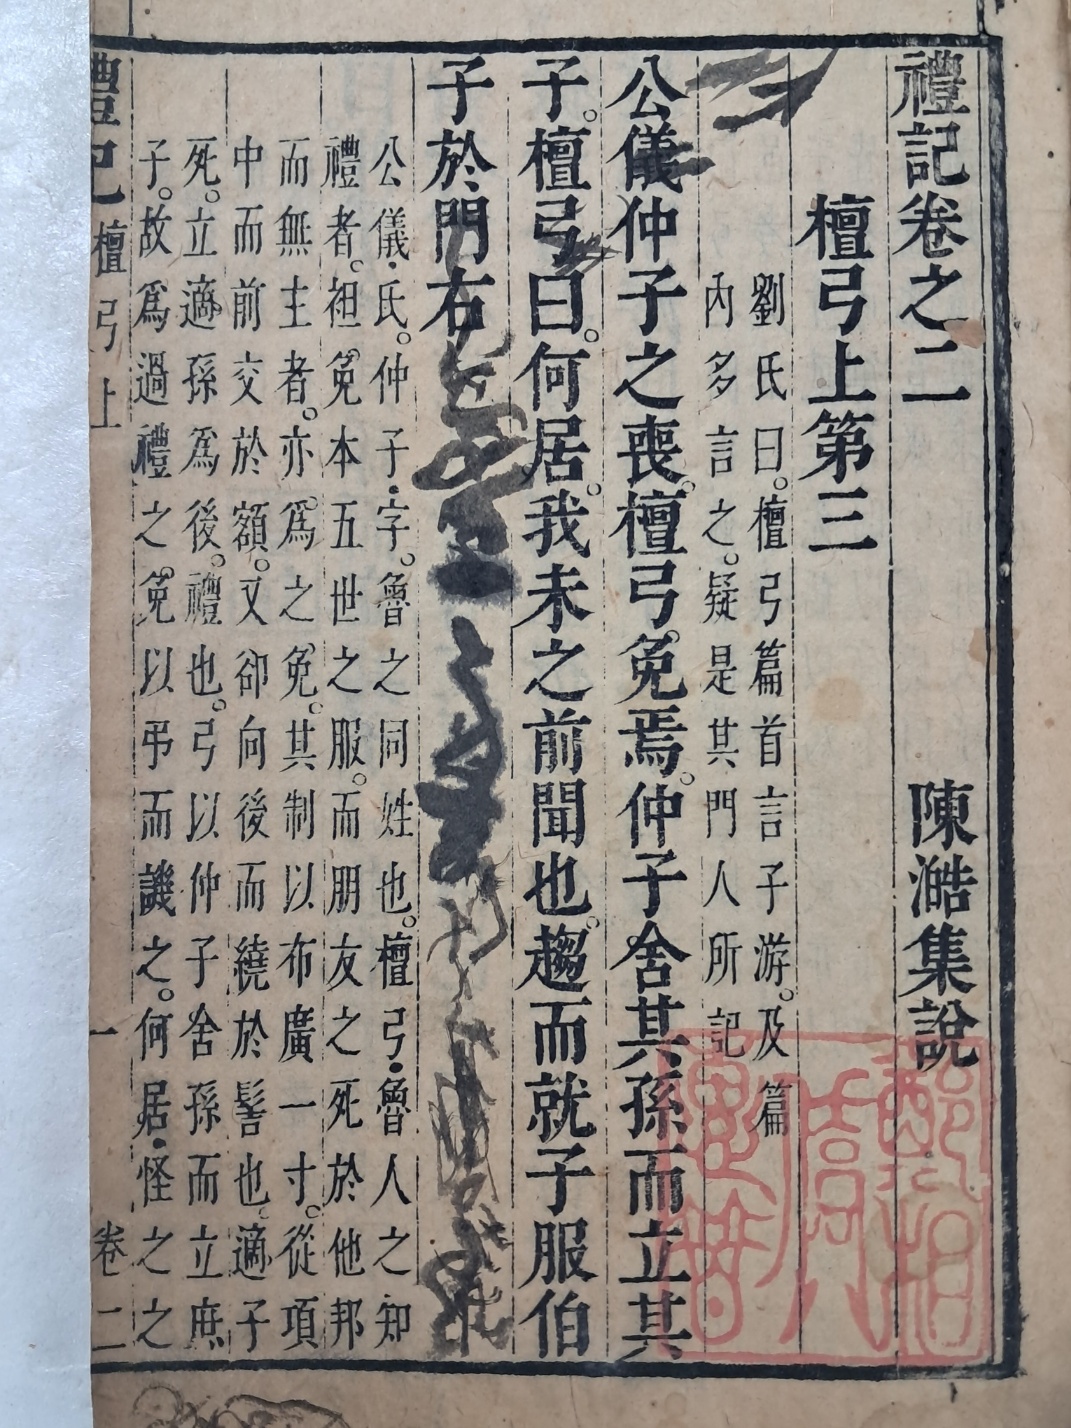 禮記卷之二 陳澔集說
檀弓上第三
劉氏曰。檀弓篇首言子游。及篇
內多言之。疑是其門人所記
公儀仲子之喪。檀弓免焉。仲子舍其孫而立其
子。檀弓曰。何居。我未之前聞也。趨而就子服伯
子於門右
公儀·氏。仲子·字。魯之同姓也。檀弓·魯人之知
禮者。袒。免本五世之服。而朋友之死於他邦
而無主者。亦爲之免。其制以布廣一寸。從項
中而前交於額。又卻向後而繞於髻也。適子
死。立適孫爲後。禮也。弓以仲子舍孫而立庶
子。故爲過禮之免以弔而譏之。何居·怪之之
禮記 檀弓上 一 卷二